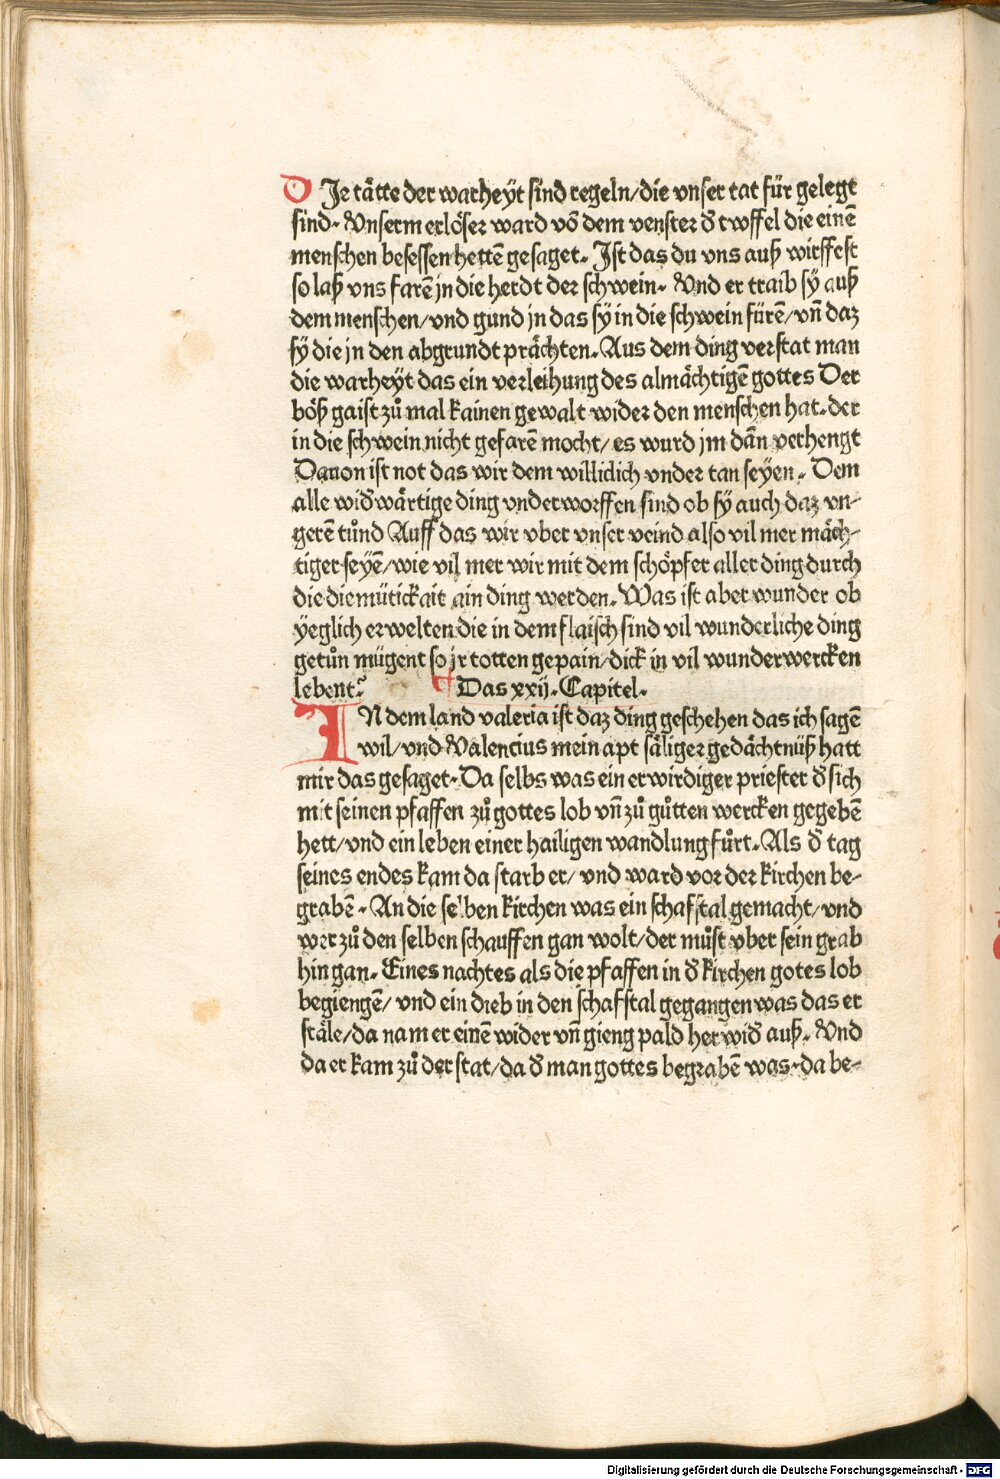 DJe tätte der warheÿt sind regeln/die vnser tat für gelegt
sind. Vnserm erlöser ward võ dem venster đ twffel die einẽ
menschen besessen hettẽ gesaget. Jst das du vns auß wirffest
so laß vns farẽ jn die herdt der schwein. Vnd er traib sÿ auß
dem menschen/vnd gund jn das sÿ in die schwein fürẽ/vñ daz
sÿ die jn den abgrundt prächten. Aus dem ding verstat man
die warheÿt das ein verleihung des almächtigẽ gottes Der
böß gaist zů mal kainen gewalt wider den menschen hat. der
in die schwein nicht gefarẽ mocht/es wurd jm dãn verhengt
Dauon ist not das wir dem williclich vnder tan seÿen. Dem
alle wiđwärtige ding vnderworffen sind ob sÿ auch daz vn-
gerẽ tůnd Auff das wir vber vnser veind also vil mer mäch-
tiger seÿẽ/wie vil mer wir mit dem schöpfer aller ding durch
die diemütickait ain ding werden. Was ist aber wunder ob
ÿeglich erwelten die in dem flaisch sind vil wunderliche ding
getůn mügent so jr totten gepain/dick in vil wunderwercken
lebent?
Das xxij. Capitel.
JN dem land valeria ist daz ding geschehen das ich sagẽ
wil/vnd Valencius mein apt säliger gedächtnüß hatt
mir das gesaget. Da selbs was ein erwirdiger priester đ sich
mit seinen pfaffen zů gottes lob vñ zů gůtten wercken gegebẽ
hett/vnd ein leben einer hailigen wandlung fůrt. Als đ tag
seines endes kam da starb er/vnd ward vor der kirchen be-
grabẽ. An die selben kirchen was ein schafstal gemacht/vnd
wer zů den selben schauffen gan wolt/der můst vber sein grab
hin gan. Eines nachtes als die pfaffen in đ kirchen gotes lob
begiengẽ/vnd ein dieb in den schafstal gegangen was das er
stäle/da nam er einẽ wider vñ gieng pald her wiđ auß. Vnd
da er kam zů der stat/da đ man gottes begrabẽ was. da be-
Digitalisierung gefördert durch die Deutsche Forschungsgemeinschaft - DFG